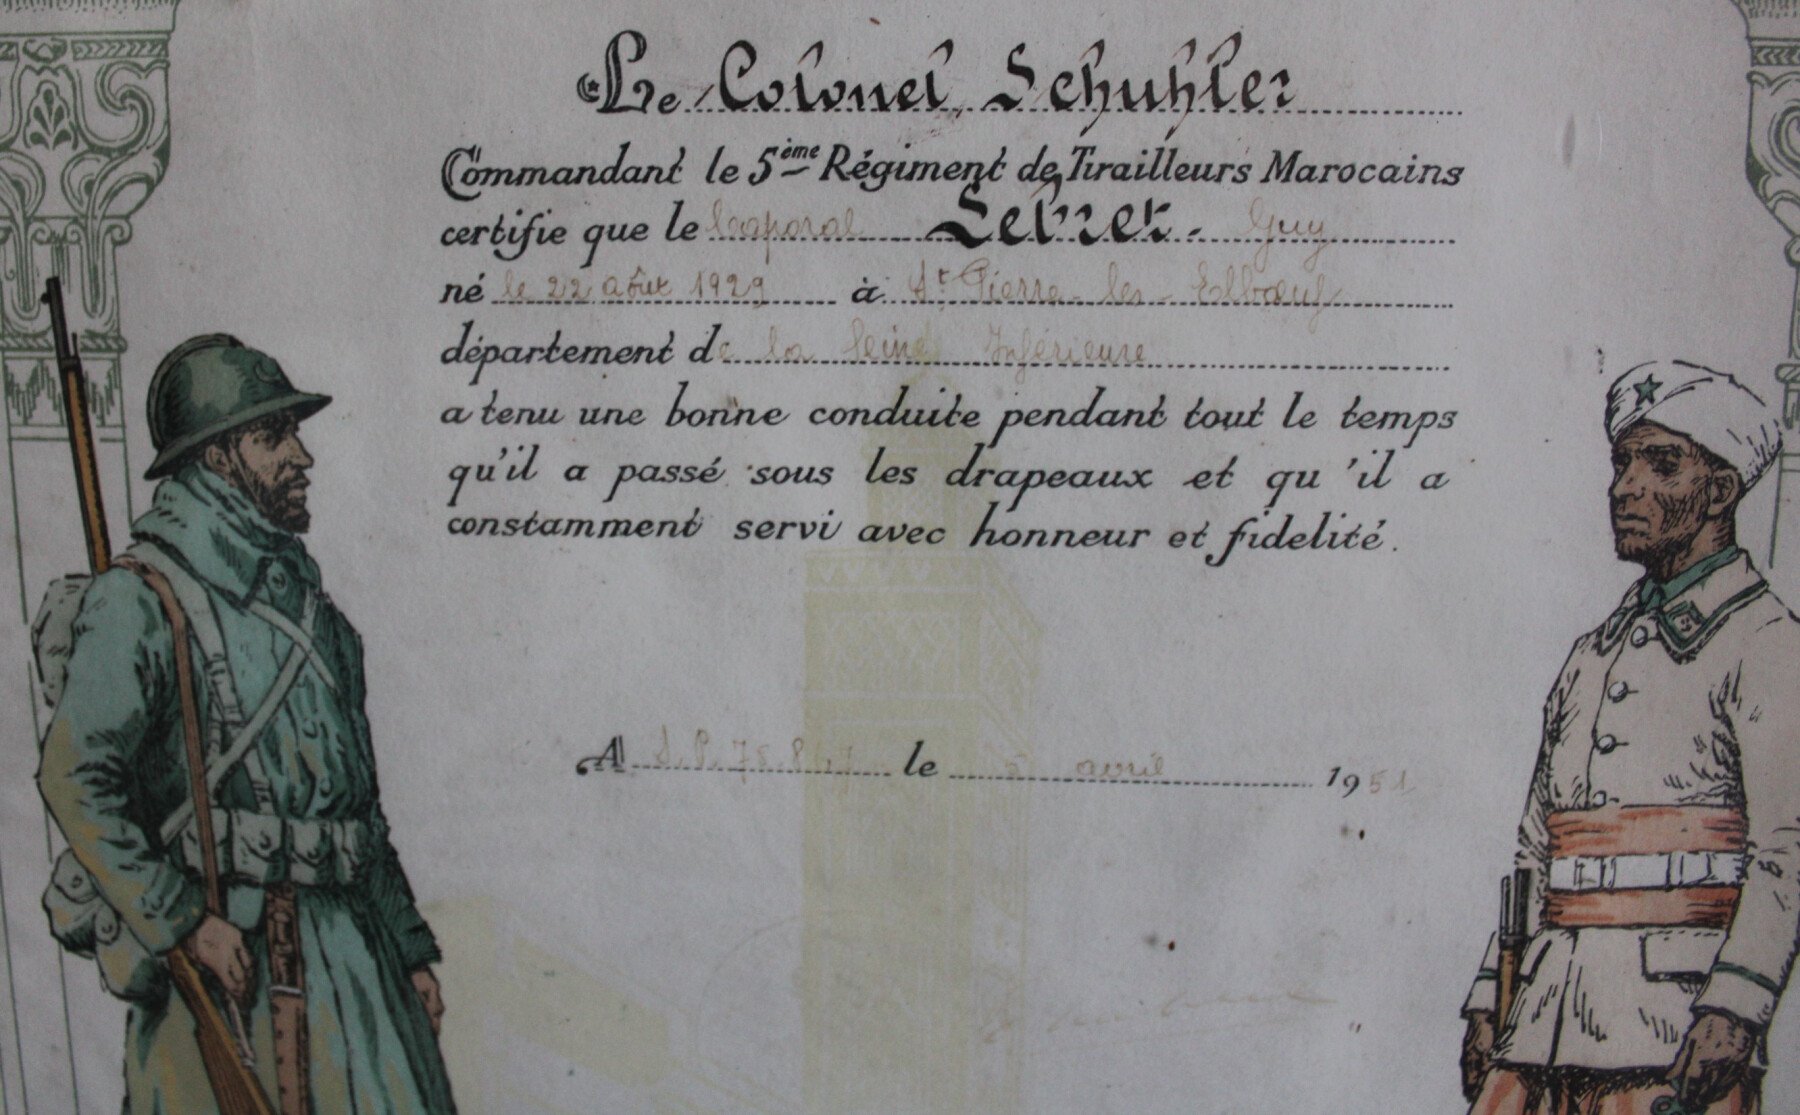 Le Colonel Schuhler
Commandant le 5ème Régiment de Tirailleurs Marocains
certifie que le Caporal Lebret. Guy
né le 22 août 1929 à St Pierre-les-Elbœuf
département de la Seine Inférieure
a tenu une bonne conduite pendant tout le temps
qu'il a passé sous les drapeaux et qu'il a
constamment servi avec honneur et fidelité.
A S.P. 78.847 le 5 avril 1951